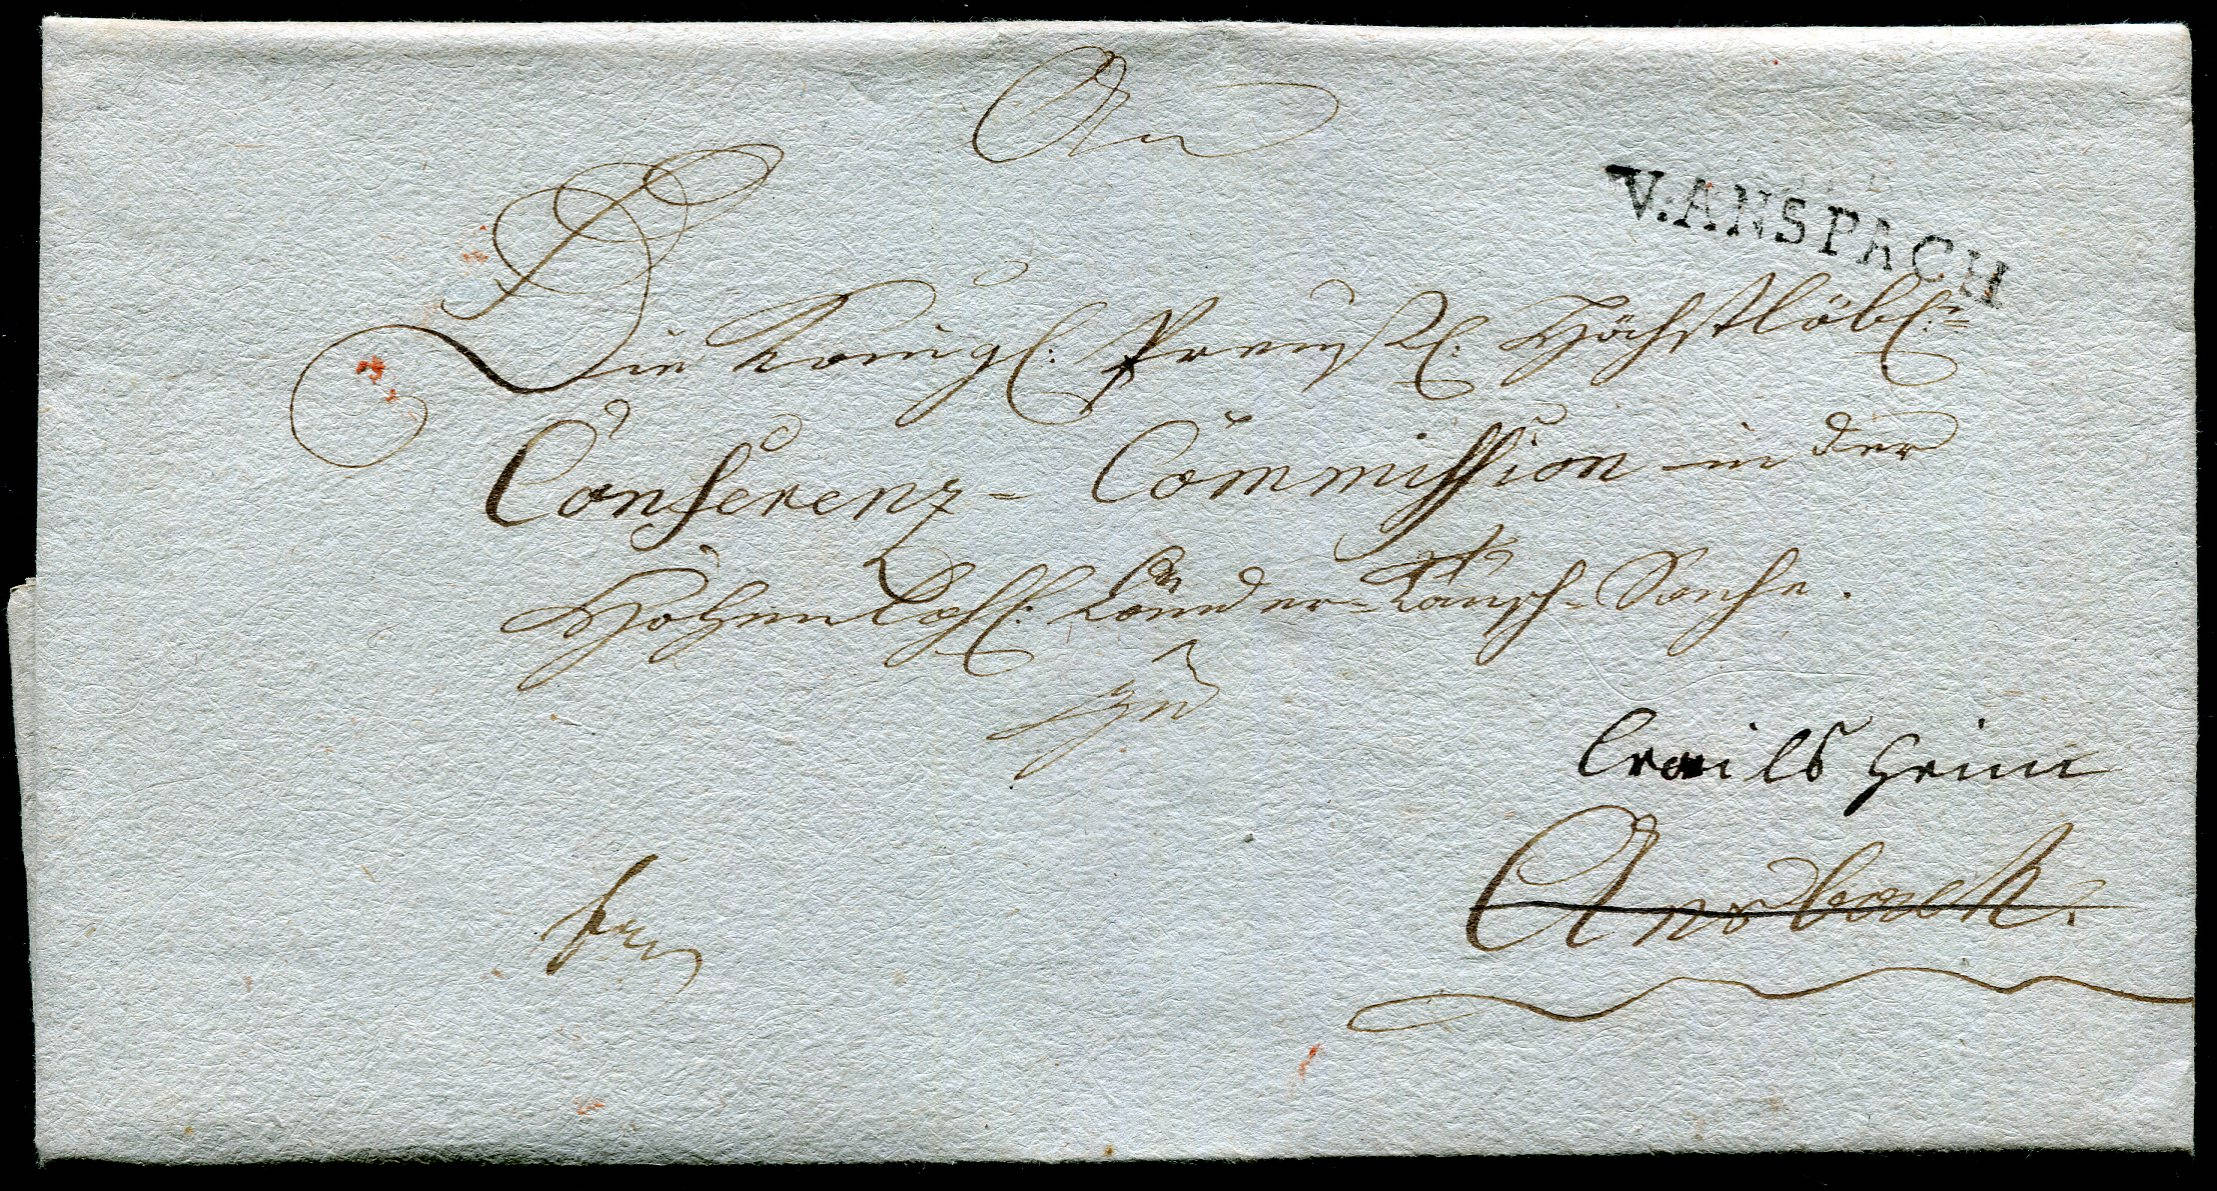 An
V. ANSPACH
Die Königl: Preuß: Höchstlöbl:
Conferenz- Commission in der
Hohenlohl: Länder-Tausch-Sache.
zu
Crailsheim
Ansbach.